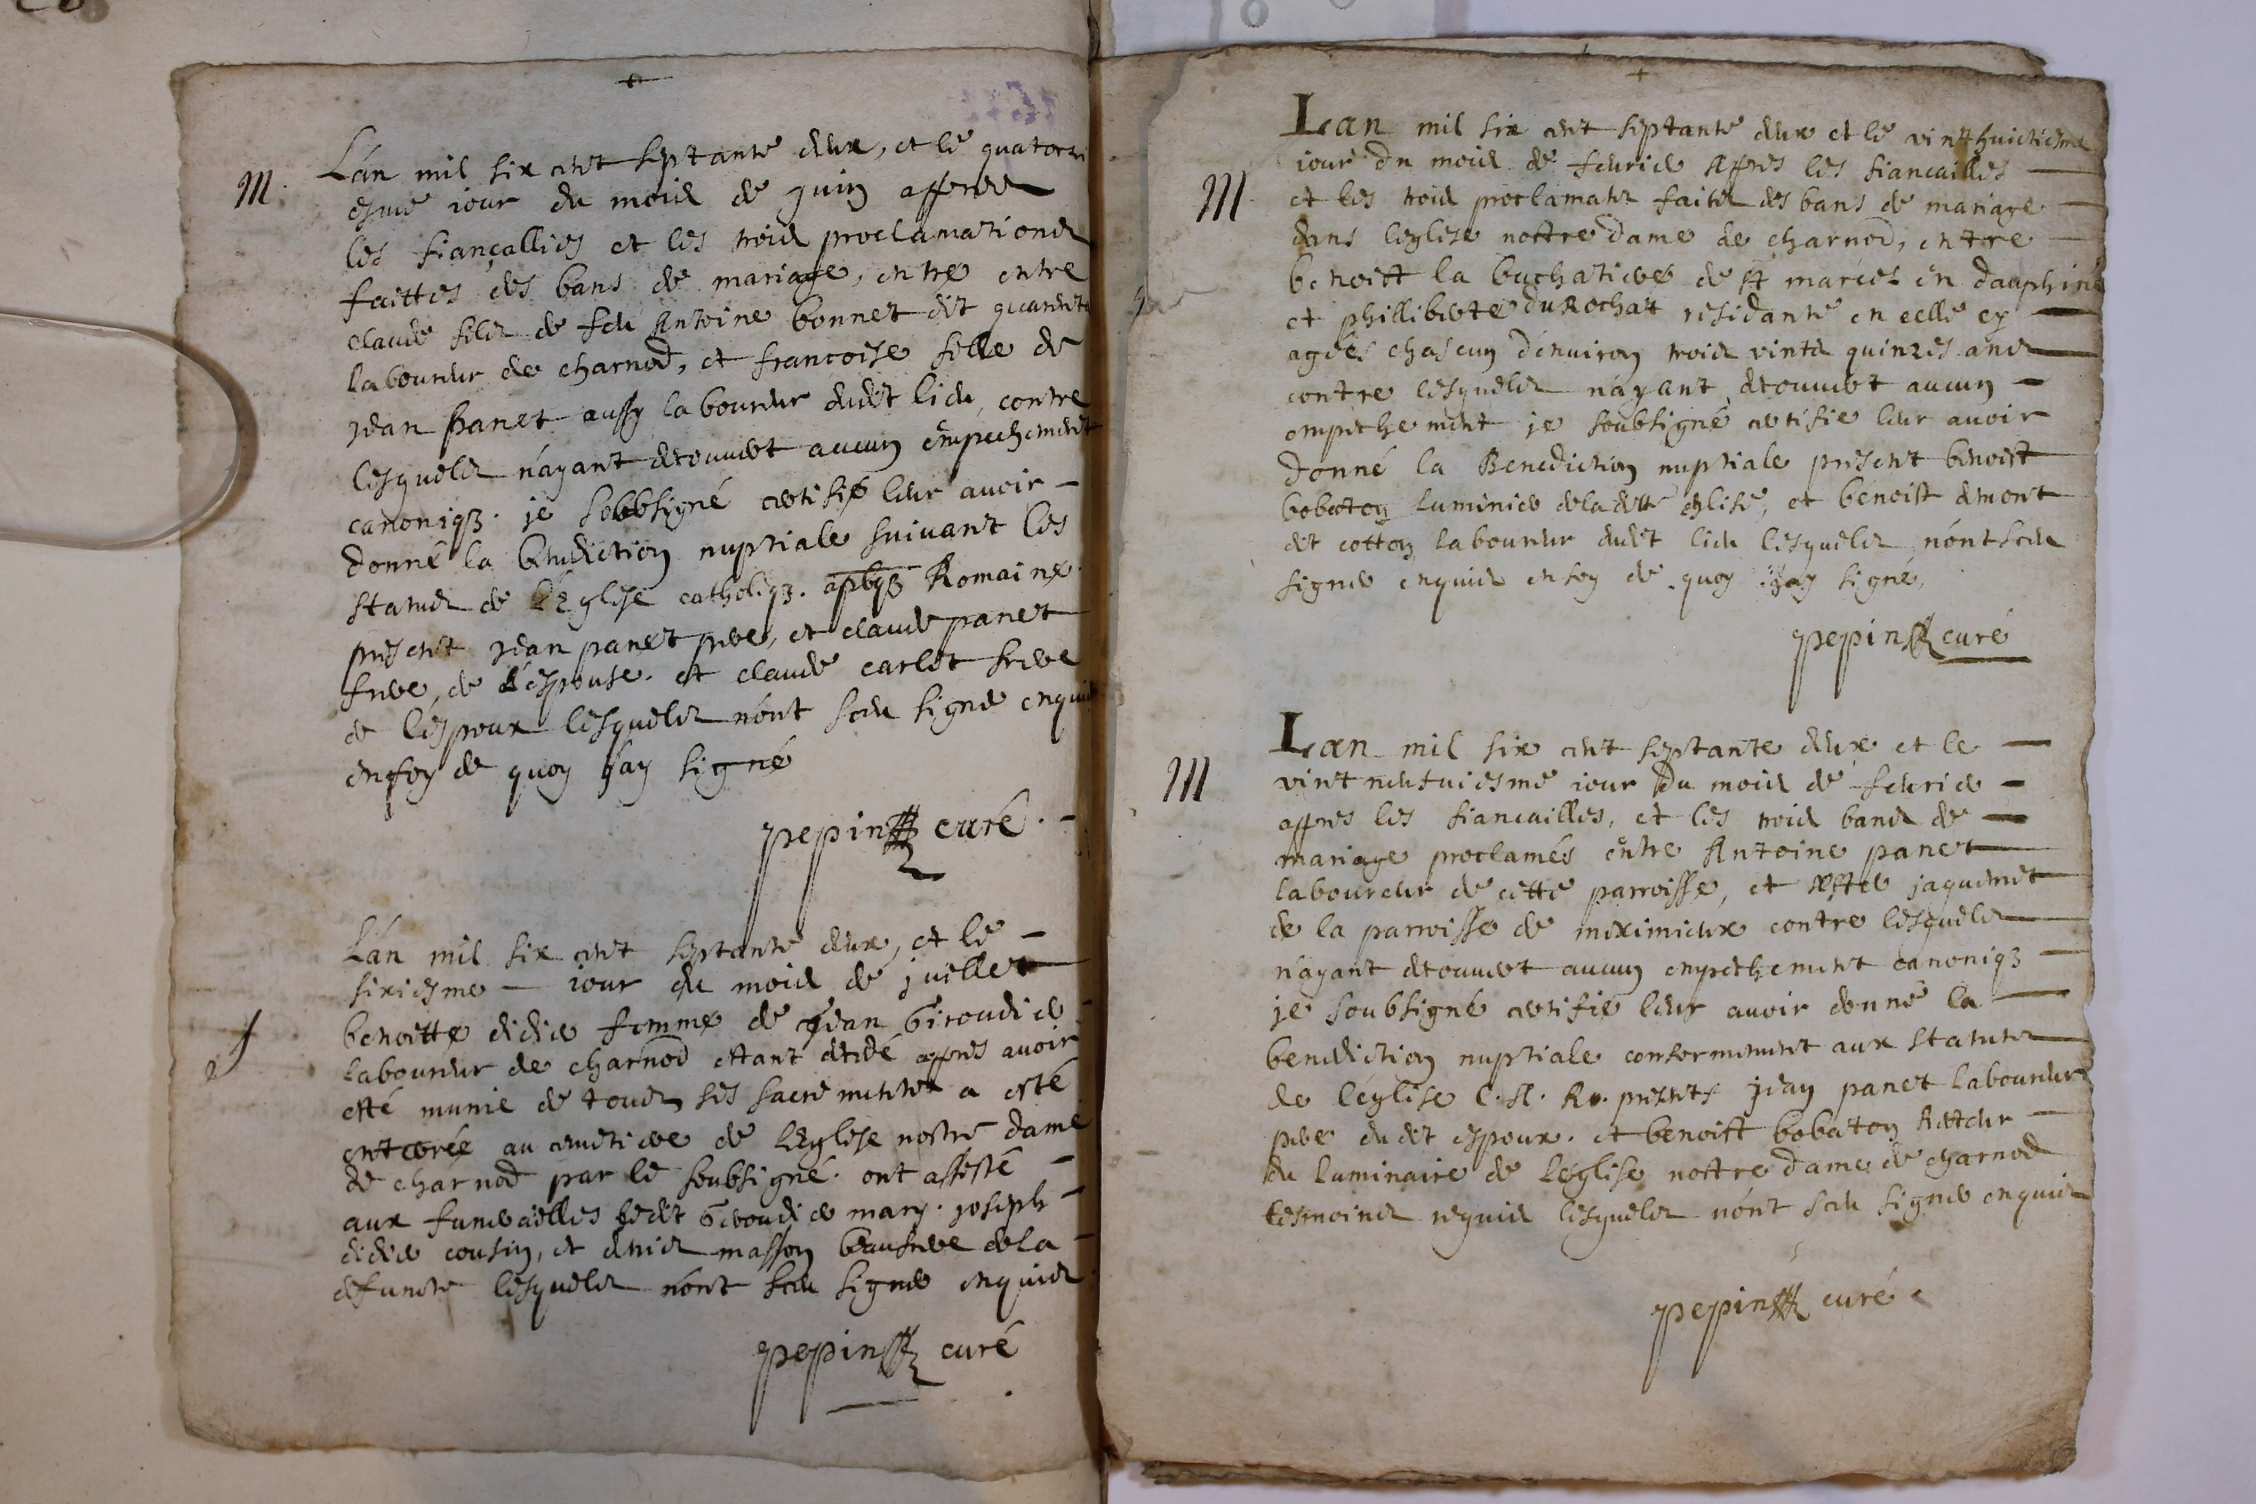 M.
L'an mil six cent septante deux, et le quatorzi
esme iour du mois de juin appres
les fiançallies et les trois proclamations
faittes des bans de mariage, entre entre
claude filz de feu Antoine bonnet dit
laboureur de charnod, et francoise fille de
jean panet aussy laboureur dudit lieu, contre
lesquelz n'ayant descouvert aucun empechement
canoniq3. je sobbsigné certifie leur avoir -
donné la benediction nuptiale suivant les
statuz de L'Eglise catholiq3. apl'q3 Romaine.
present jean panet pere, et claude panet
frere, de l'espouse. et claude carlet frere
de l'espoux lesquelz n'ont sceu signer enquis
en foy de quoy j'ay signé
pepin curé.
L'an mil six cent septante deux, et le -
sixiesme - iour du mois de juillet
benoitte didier femme de jean Giroudier
laboureur de charnod estant decedé appres avoir
esté munie de tous ses sacrementz a esté
enterrée au cemetiere de L'Eglise nostre dame
de charnod par le soubsigné. ont assisté -
aux funerailles ledit Giroudier mary. joseph -
didier cousin, et denis masson beaufrere de la -
defuncte lesquelz n'ont sceu signer enquis.
pepin curé
M
Lan mil six cent septante deux et le vintthuictiesme
iour du mois de feurier Apres les fiancailles
et les trois proclamatz faites des bans de mariage
dans leglise nostre dame de charnod, entre
benoist la buthatiere de st marcel en dauphiné
et philliberte du Rochat residante en celle cy
agées chascun d'enuiron trois vintz quinzes ans
contre lesquelz n'ayant decouvert aucun
empechement je soubsigné certifie leur avoir
donné la Benediction nuptiale present benoist
bobaton luminier de la ditte eglise, et benoist demont
dit cotton laboureur dudit lieu lesquelz n'ont sceu
signer enquis en foy de quoy j'ay signé,
pepin curé
M
Lan mil six cent septante deux et le
vint neufuiesme iour du mois de feurier
appres les fiancailles, et les trois bans de
mariage proclamés entre Antoine panet
laboureur de cette parroisse, et jaquemet
de la parroisse de meximieux contre lesquelz
n'ayant decouvert aucun empechement canoniq3
je soubsigné certifie leur avoir donné la
benediction nuptiale conformement aux statutz
de l'eglise C. A. Ro. presents jean panet laboureur
pere du dit espoux. et benoist bobaton Recteur
du luminaire de leglise nostre dame de charnod
tesmoins requis lesquelz n'ont sceu signer enquis
pepin curé